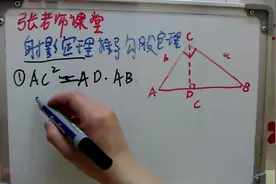 张老师课堂
射影定理推导勾股定理
①AC²=AD·AB
C
b a
A D B
C